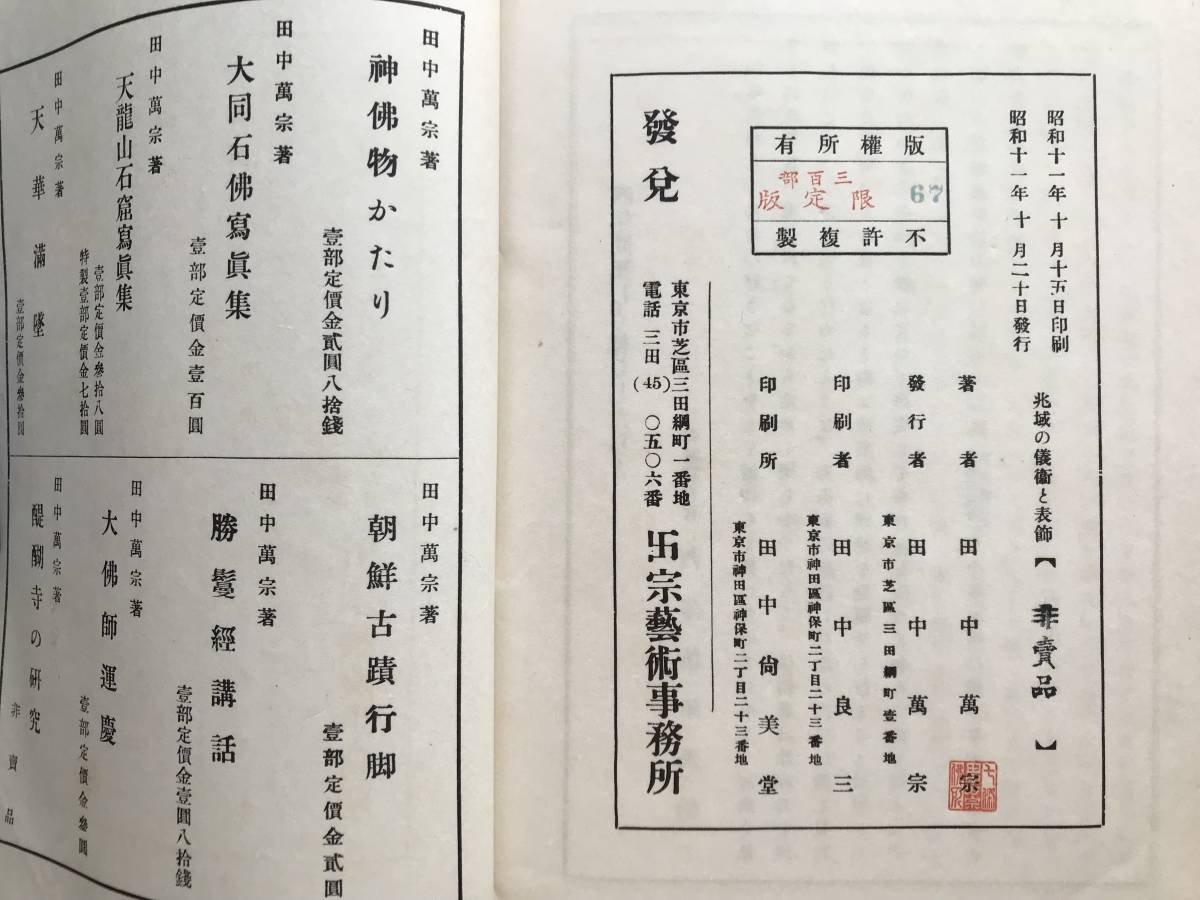 昭和十一年十月十五日印刷
昭和十一年十月二十日發行
兆域の儀衞と表飾【非賣品】
著者 田中萬宗
發行者 田中萬宗
東京市芝區三田綱町壹番地
印刷者 田中良三
東京市神田區神保町二丁目二十三番地
印刷所 田中尙美堂
東京市神田區神保町二丁目二十三番地
版權所有
三百部
限定版
67
不許複製
發兌
東京市芝區三田綱町一番地
電話三田(45)〇五〇六番
卍宗藝術事務所
田中萬宗著
神佛物かたり
壹部定價金貳圓八拾錢
田中萬宗著
大同石佛寫眞集
壹部定價金壹百圓
田中萬宗著
天龍山石窟寫眞集
壹部定價金參拾八圓
特製壹部定價金七拾圓
田中萬宗著
天華滿墜
壹部定價金參拾圓
田中萬宗著
朝鮮古蹟行脚
壹部定價金貳圓
田中萬宗著
勝鬘經講話
壹部定價金壹圓八拾錢
田中萬宗著
大佛師運慶
壹部定價金參圓
田中萬宗著
醍醐寺の硏究
非賣品